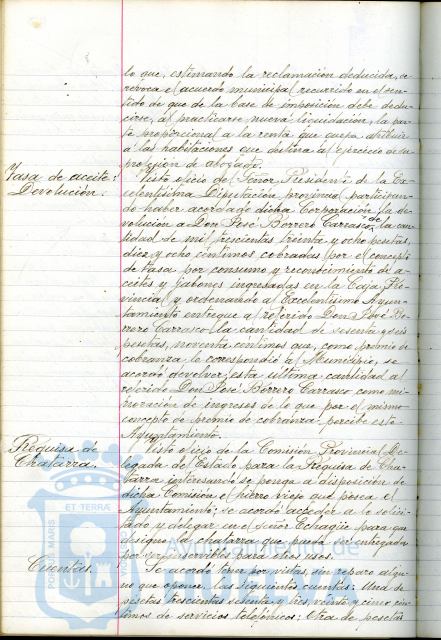 lo que, estimando la reclamación deducida, se
revoca el acuerdo municipal recurrido en el sen-
tido de que de la base de imposición debe dedu-
cirse, al practicarse nueva liquidación, la par-
te proporcional a la renta que quepa atribuir
a las habitaciones que destina al ejercicio de su
profesión de abogado.
Tasa de aceite:
Devolución.
Visto oficio del Señor Presidente de la Ex-
celentísima Diputación provincial participan-
do haber acordado dicha Corporación la de-
volución a Don José Borrero Carrasco de la can-
tidad de mil trescientas treinta y ocho pesetas,
diez y ocho céntimos cobradas por el concepto
de tasa por consumo y reconocimiento de a-
ceites y jabones ingresadas en la Caja Pro-
vincial y ordenando al Excelentísimo Ayun-
tamiento entregue al referido Don José Bo-
rrero Carrasco la cantidad de sesenta y seis
pesetas, noventa céntimos que, como premio de
cobranza le correspondió al Municipio, se
acordó devolver esta última cantidad al
referido Don José Borrero Carrasco como mi-
noración de ingresos de lo que por el mismo
concepto de premio de cobranza percibe este
Ayuntamiento.
Requisa de
Chatarra.
Visto oficio de la Comisión Provincial De-
legada del Estado para la Requisa de Cha-
tarra interesando se ponga a disposición de
dicha Comisión el hierro viejo que posea el
Ayuntamiento; se acordó acceder a lo solici-
tado y delegar en el señor Echagüe para que
designe la chatarra que pueda ser entregada
por ser inservible para otros usos.
Cuentas.
Se acordó tener por vistas, sin reparo algu-
no que oponer, las siguientes cuentas: Una de
pesetas trescientas setenta y tres, veinte y cinco cén-
timos de servicios telefónicos; Otra de pesetas
PORTUS MARIS ET TERRAE